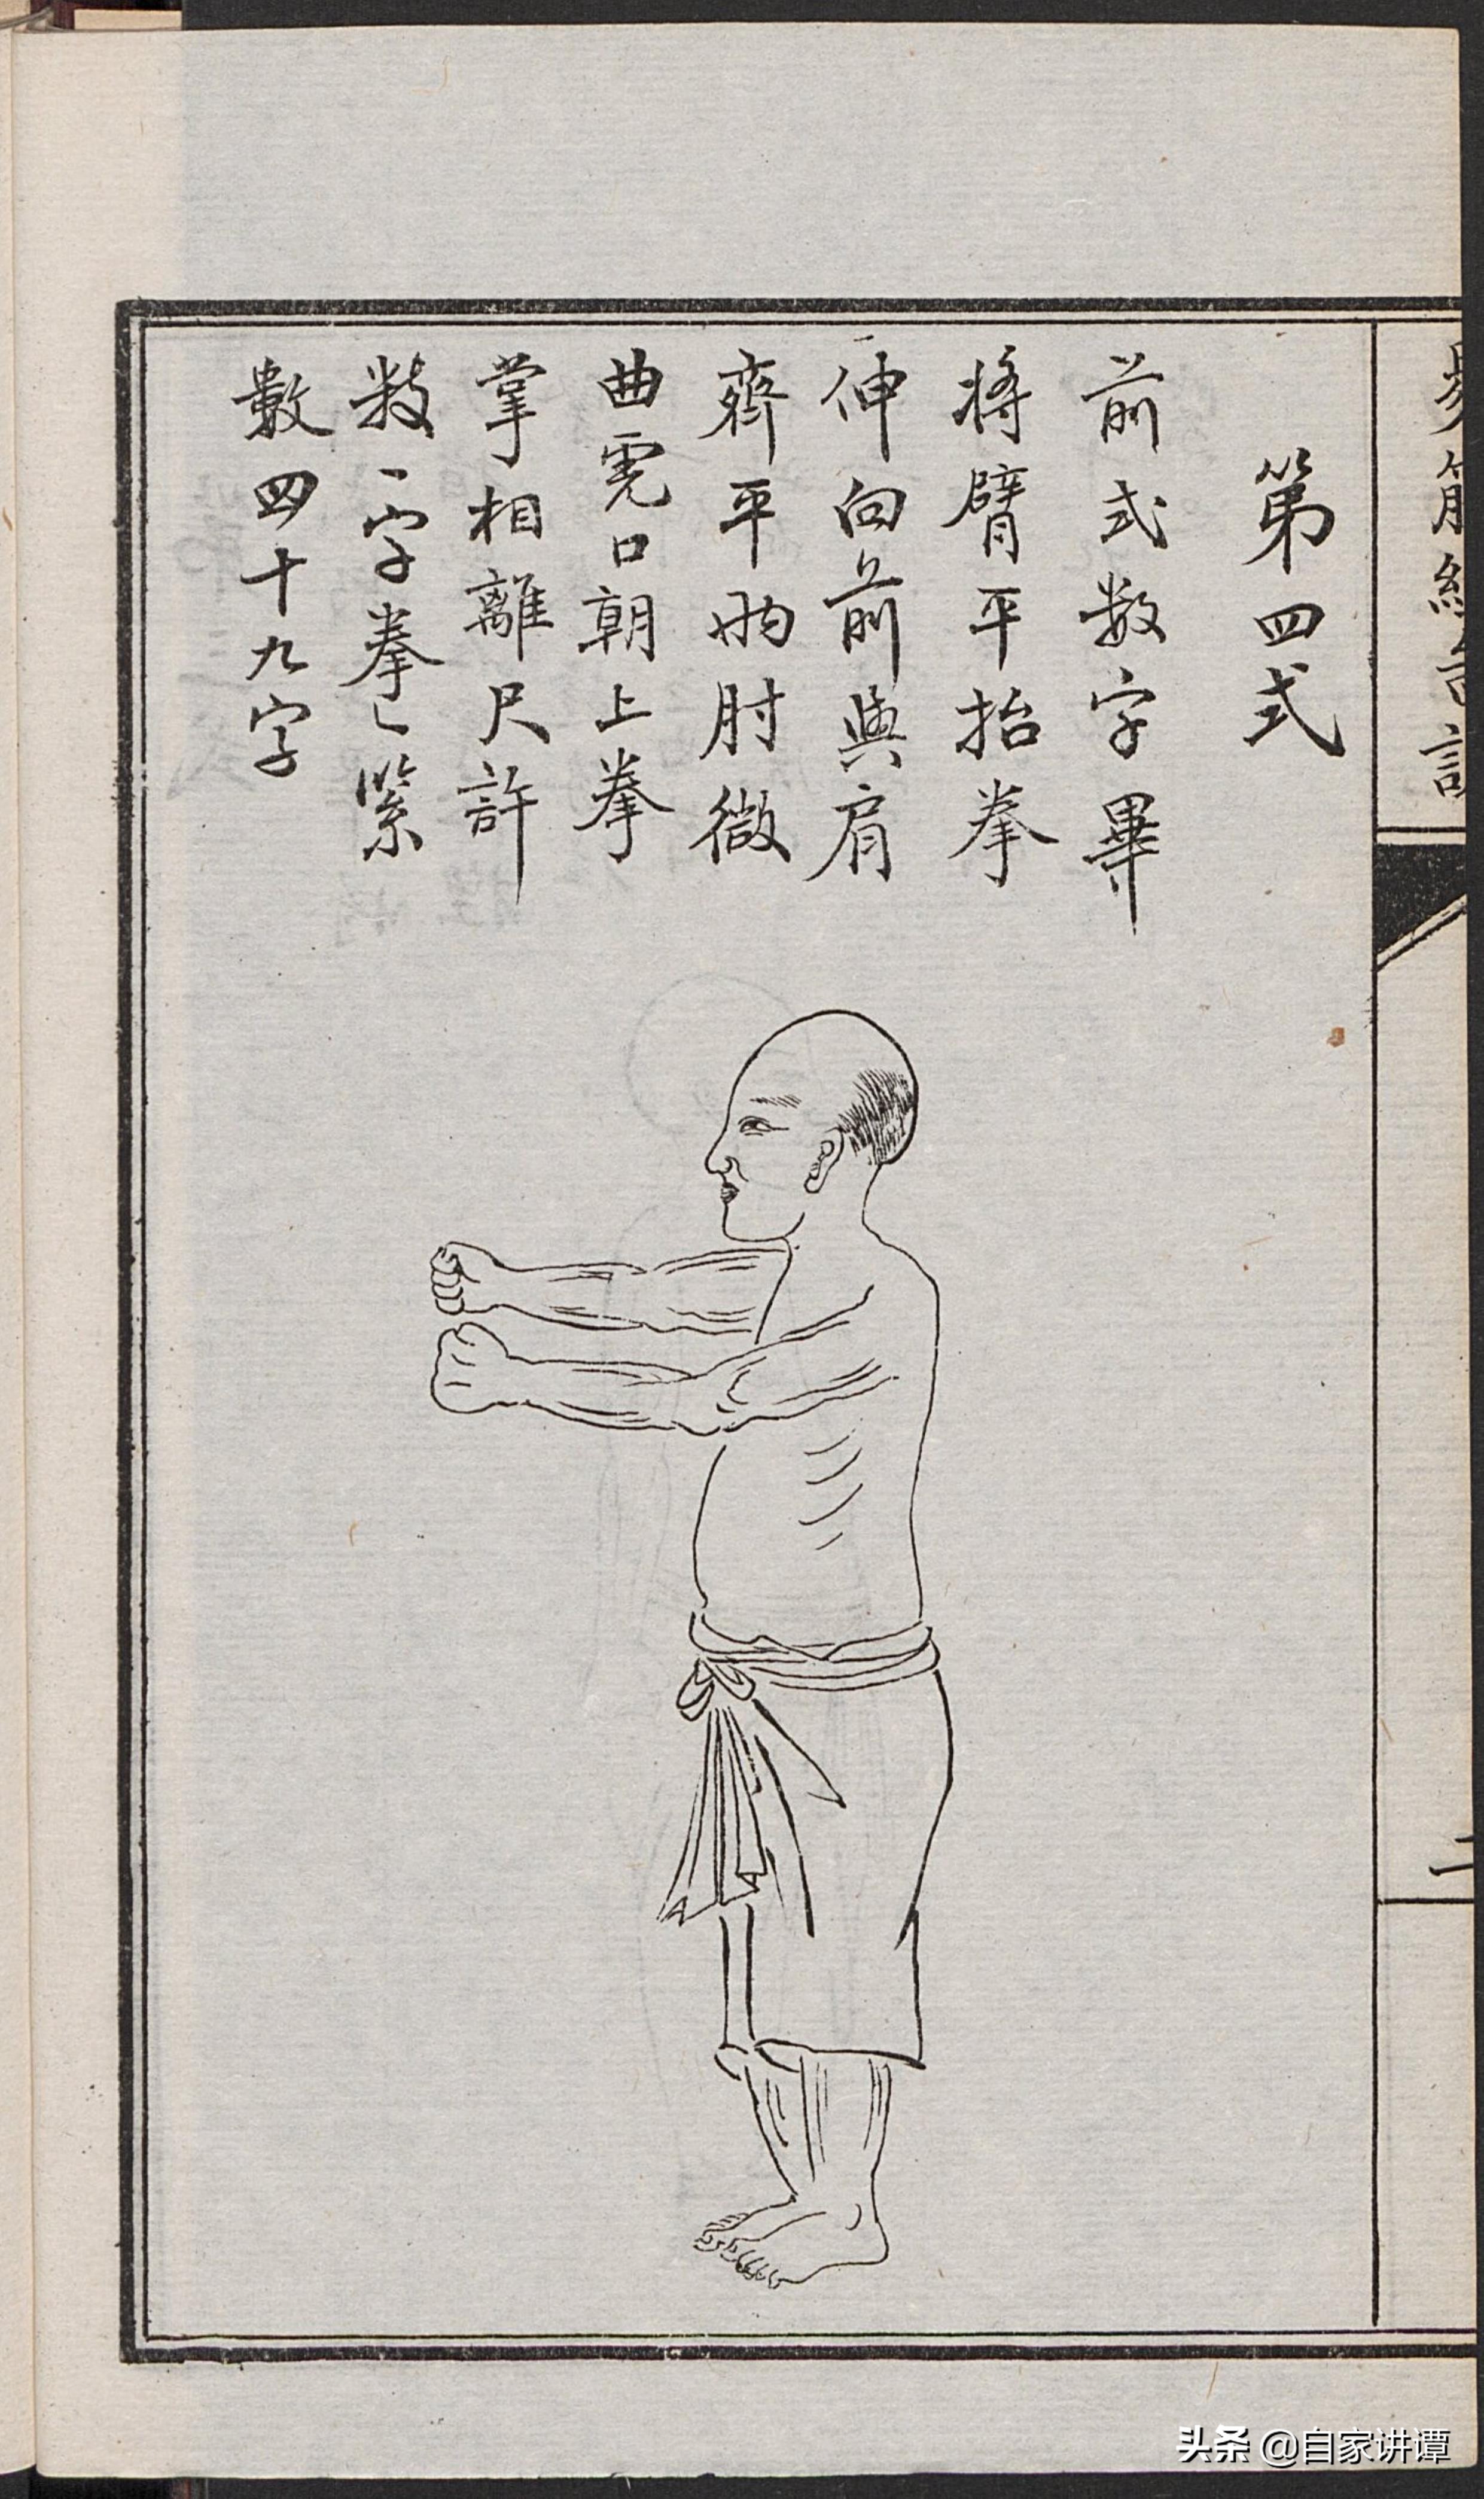 第四式
前式数字畢
将臂平抬拳
伸向前與肩
齊平兩肘微
曲虎口朝上拳
掌相離尺許
数一字拳〻緊
數四十九字
易筋經
二
头条 @自家讲谭